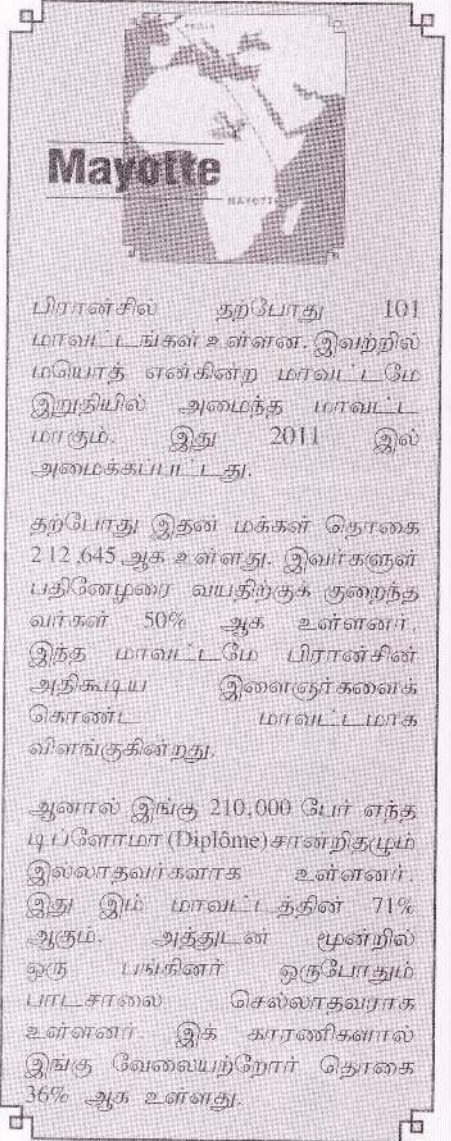 Mayotte
MAYOTTE
பிரான்சில் தற்போது 101
மாவட்டங்கள் உள்ளன. இவற்றில்
மயொத் என்கின்ற மாவட்டமே
இறுதியில் அமைந்த மாவட்ட
மாகும். இது 2011 இல்
அமைக்கப்பட்டது.
தற்போது இதன் மக்கள் தொகை
212,645 ஆக உள்ளது. இவர்களுள்
பதினேழரை வயதிற்குக் குறைந்த
வர்கள் 50% ஆக உள்ளனர்.
இந்த மாவட்டமே பிரான்சின்
அதிகூடிய இளைஞர்களைக்
கொண்ட மாவட்டமாக
விளங்குகின்றது.
ஆனால் இங்கு 210,000 பேர் எந்த
டிப்ளோமா (Diplôme) சான்றிதழும்
இல்லாதவர்களாக உள்ளனர்.
இது இம் மாவட்டத்தின் 71%
ஆகும். அத்துடன் மூன்றில்
ஒரு பங்கினர் ஒருபோதும்
பாடசாலை செல்லாதவராக
உள்ளனர். இக் காரணிகளால்
இங்கு வேலையற்றோர் தொகை
36% ஆக உள்ளது.